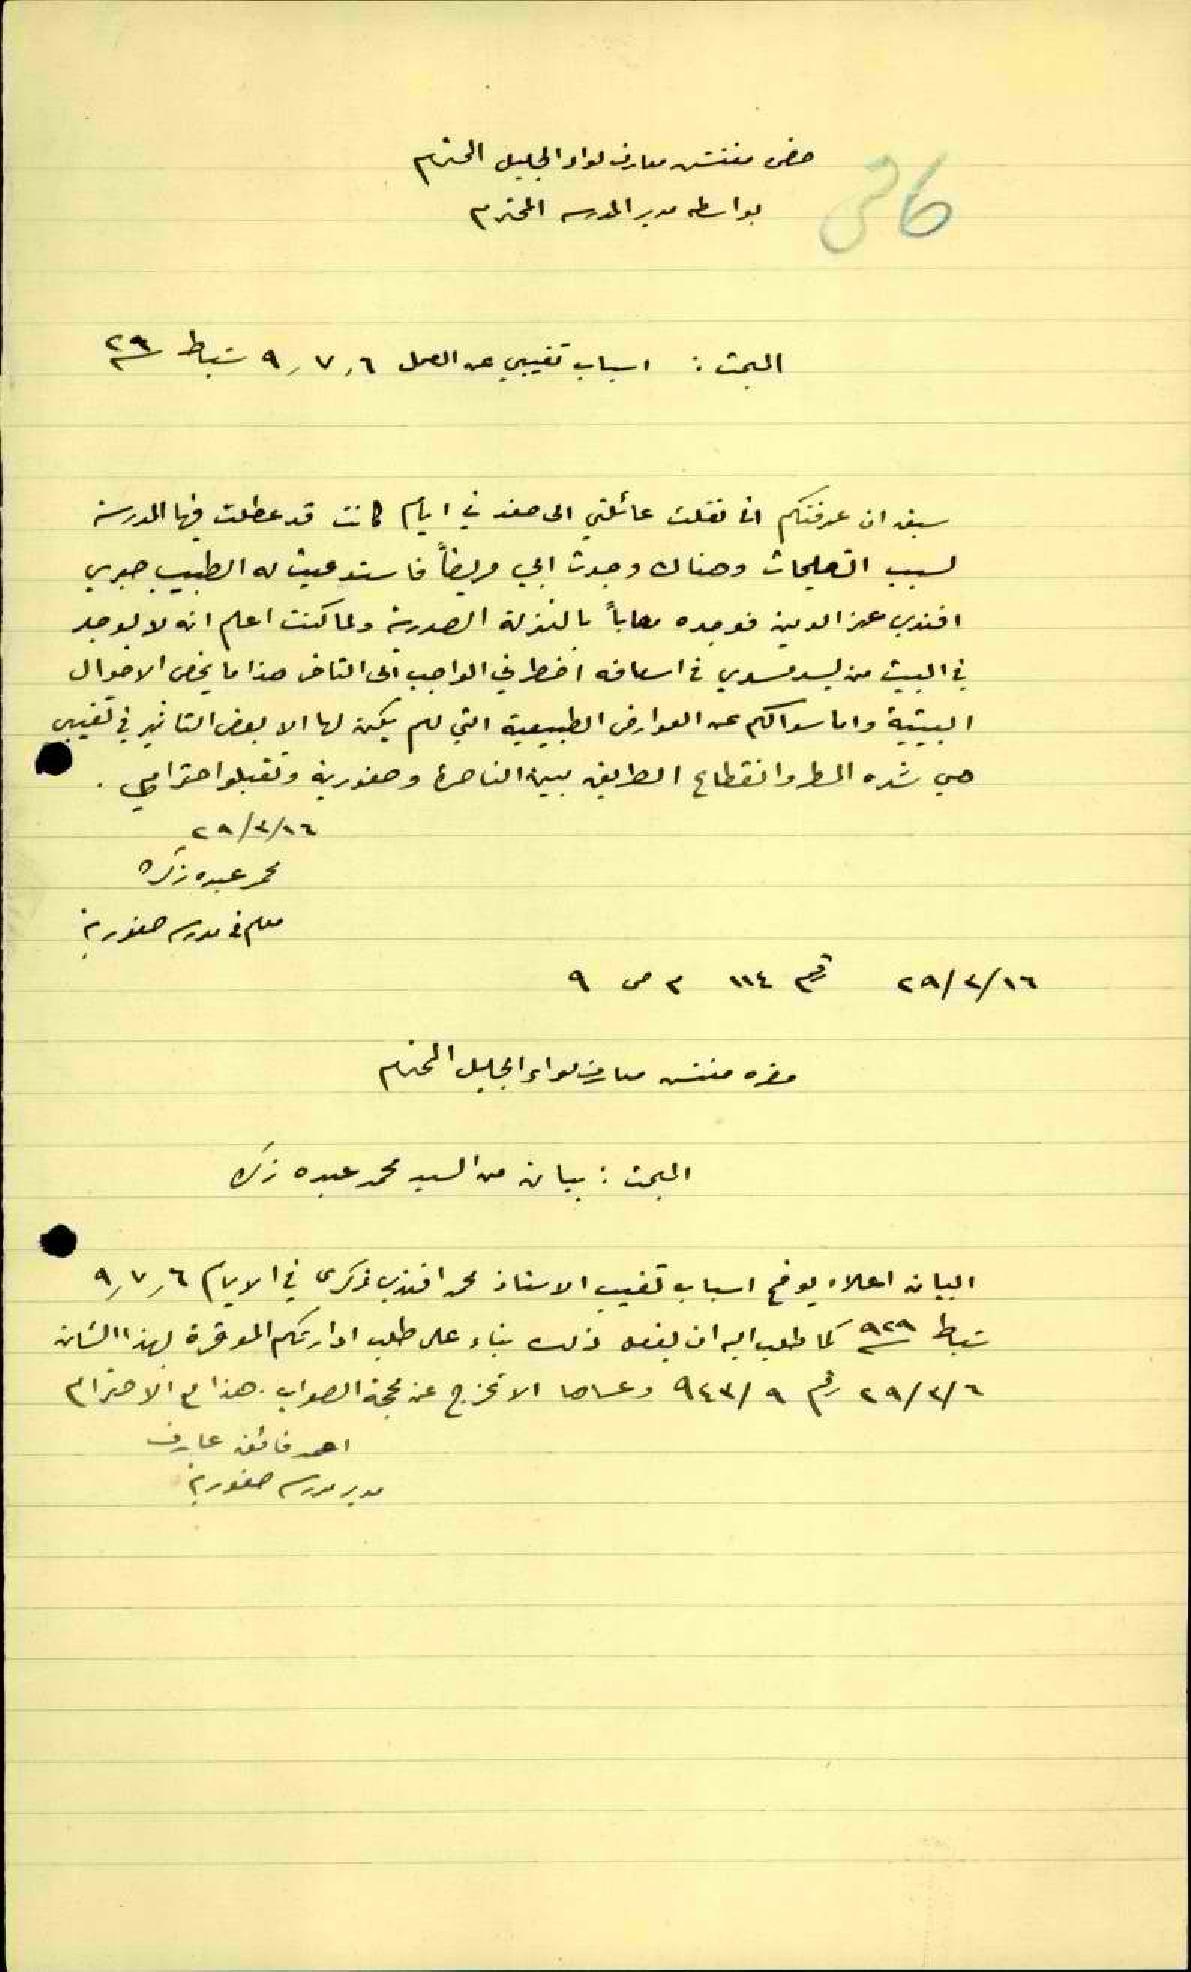 حضرة مفتش معارف لواء الجليل المحترم
بواسطه مدير المدرسه المحترم
26
البحث : اسباب تغيبي عن العمل ٦ ,٧ ,٩ شباط ٢٩
سبق ان عرفتكم اني نقلت عائلتي الى صفد في ايام كانت قد عطلت فيها المدرسة
لسبب التعليمات وهناك وجدت ابي مريضاً فاستدعيت له الطبيب صبري
افندي عز الدين فوجده مصاباً بالنزلة الصدرية ولما كنت اعلم انه لا يوجد
في البيت من يسد مسدي في اسعافه اضطرني الواجب الى التاخر هذا ما يخص الاحوال
البيتية واما سوالكم عن العوارض الطبيعية التي لم يكن لها الا بعض التاثير في تغيبي
هي شده المطر وانقطاع الطريق بين الناصرة وصفورية وتقبلوا احترامي .
١٦/٣/٢٩
محمد عبده زكره
معلم في مدرسه صفورية
١٦/٣/٢٩ رقم ١١٤ م ص ٩
حضره مفتش معارف لواء الجليل المحترم
البحث : بيان من السيد محمد عبده زكره
البيان اعلاه يوضح اسباب تغيب الاستاذ محمد افندي زكرى في الايام ٦ ,٧ ,٩
شباط ٩٢٩ كما طلب اليه ان يفعل ذلك بناء على طلب ادارتكم الموقرة بهذا الشان
٦/٣/٢٩ رقم ٩/٩٤٣ وعساها الا تخرج عن محجة الصواب . هذا مع الاحترام
احمد فائق عارف
مدير مدرسه صفورية